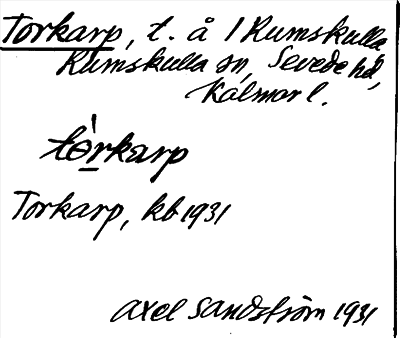 Torkarp, t. å 1 Rumskulla,
Rumskulla sn, Sevede hd,
Kalmar l.
tòrkarp
Torkarp, kb 1931
Axel Sandström 1931